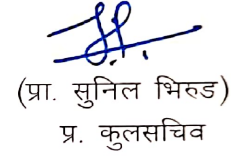 (प्रा. सुनिल भिरुड)
प्र. कुलसचिव